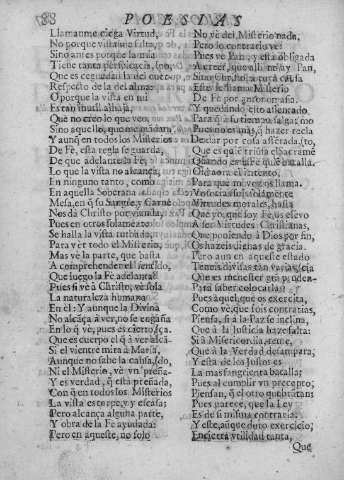 88 POESIAS
Llamanme ciega Virtud,
No porque vista me falta,
Sino antes porque la mia
Tiene tanta perspicacia,
Que es ceguedad la del cuerpo,
Respecto de la del alma:
O porque la vista en mi
Es tan inutil alhaja,
Que no creo lo que veo,
Sino aquello, que me mandan,
Y aunq̃ en todos los Misterios
De Fè, esta regla se guarda,
De que adelante la Fè,
Lo que la vista no alcança,
En ninguno tanto, como
En aquella Soberana
Mesa, en q̃ su Sangre, y Carne
Nos dà Christo por vianda,
Pues en otros solamente
Se halla la vista turbada,
Para vèr todo el Misterio,
Mas vè la parte, que basta
A comprehender el sentido,
Que luego la Fè adelanta:
Pues si vè à Christo, vè sola
La naturaleza humana
En èl: Y aunque la Divina
No alcãça à vèr, no se engaña
En lo q̃ vè, pues es cierto,
Que es cuerpo el q̃ à vèr alcãça.
Si el vientre mira à Maria,
Aunque no sabe la causa,
Ni el Misterio, vè vn preñado,
Y es verdad, q̃ està preñada,
Con q̃ en todos los Misterios
La vista es torpe, y escasa;
Pero alcança alguna parte,
Y obra de la Fè ayudada:
Pero en aqueste, no solo
No vè del Misterio nada,
Pero lo contrario vè:
Pues vè Pan, y està obligada
A creer, que allì no ay Pan,
Sino Christo,
Este se llama Misterio
De Fè por antonomasia.
Y quedando esto assentado,
Para q̃ à su tiempo salga;
Pues no es mas, q̃ hazer recla
Dexar por cosa assentada,
Oìd aora el intento,
Para que mi voz os llama.
Virtudes morales, hasta
Que yo, que soy Fè, os elevo
A ser Virtudes Christianas,
Que poniendo à Dios por fin,
Os hazeis dignas de gracia.
Pero aun en aqueste estado
Teneis divisas tan varias,
Que es menester grã prudencia
Para saber colocarlas:
Pues aquel, que os exercita,
Como vè, que sois contrarias,
Piensa, si à la Paz se inclina,
Que à la Justicia haze falta:
Si à Misericordia, teme,
Que à la Verdad desampara;
Y esta de los Justos es
La mas sangrienta batalla;
Pues al cumplir vn precepto,
Piensan, q̃ el otro quebrantan:
Pues parece, que la Ley
Es de si misma contraria:
Y este, aunque duro exercicio,
Encierra vtilidad tanta,
Que